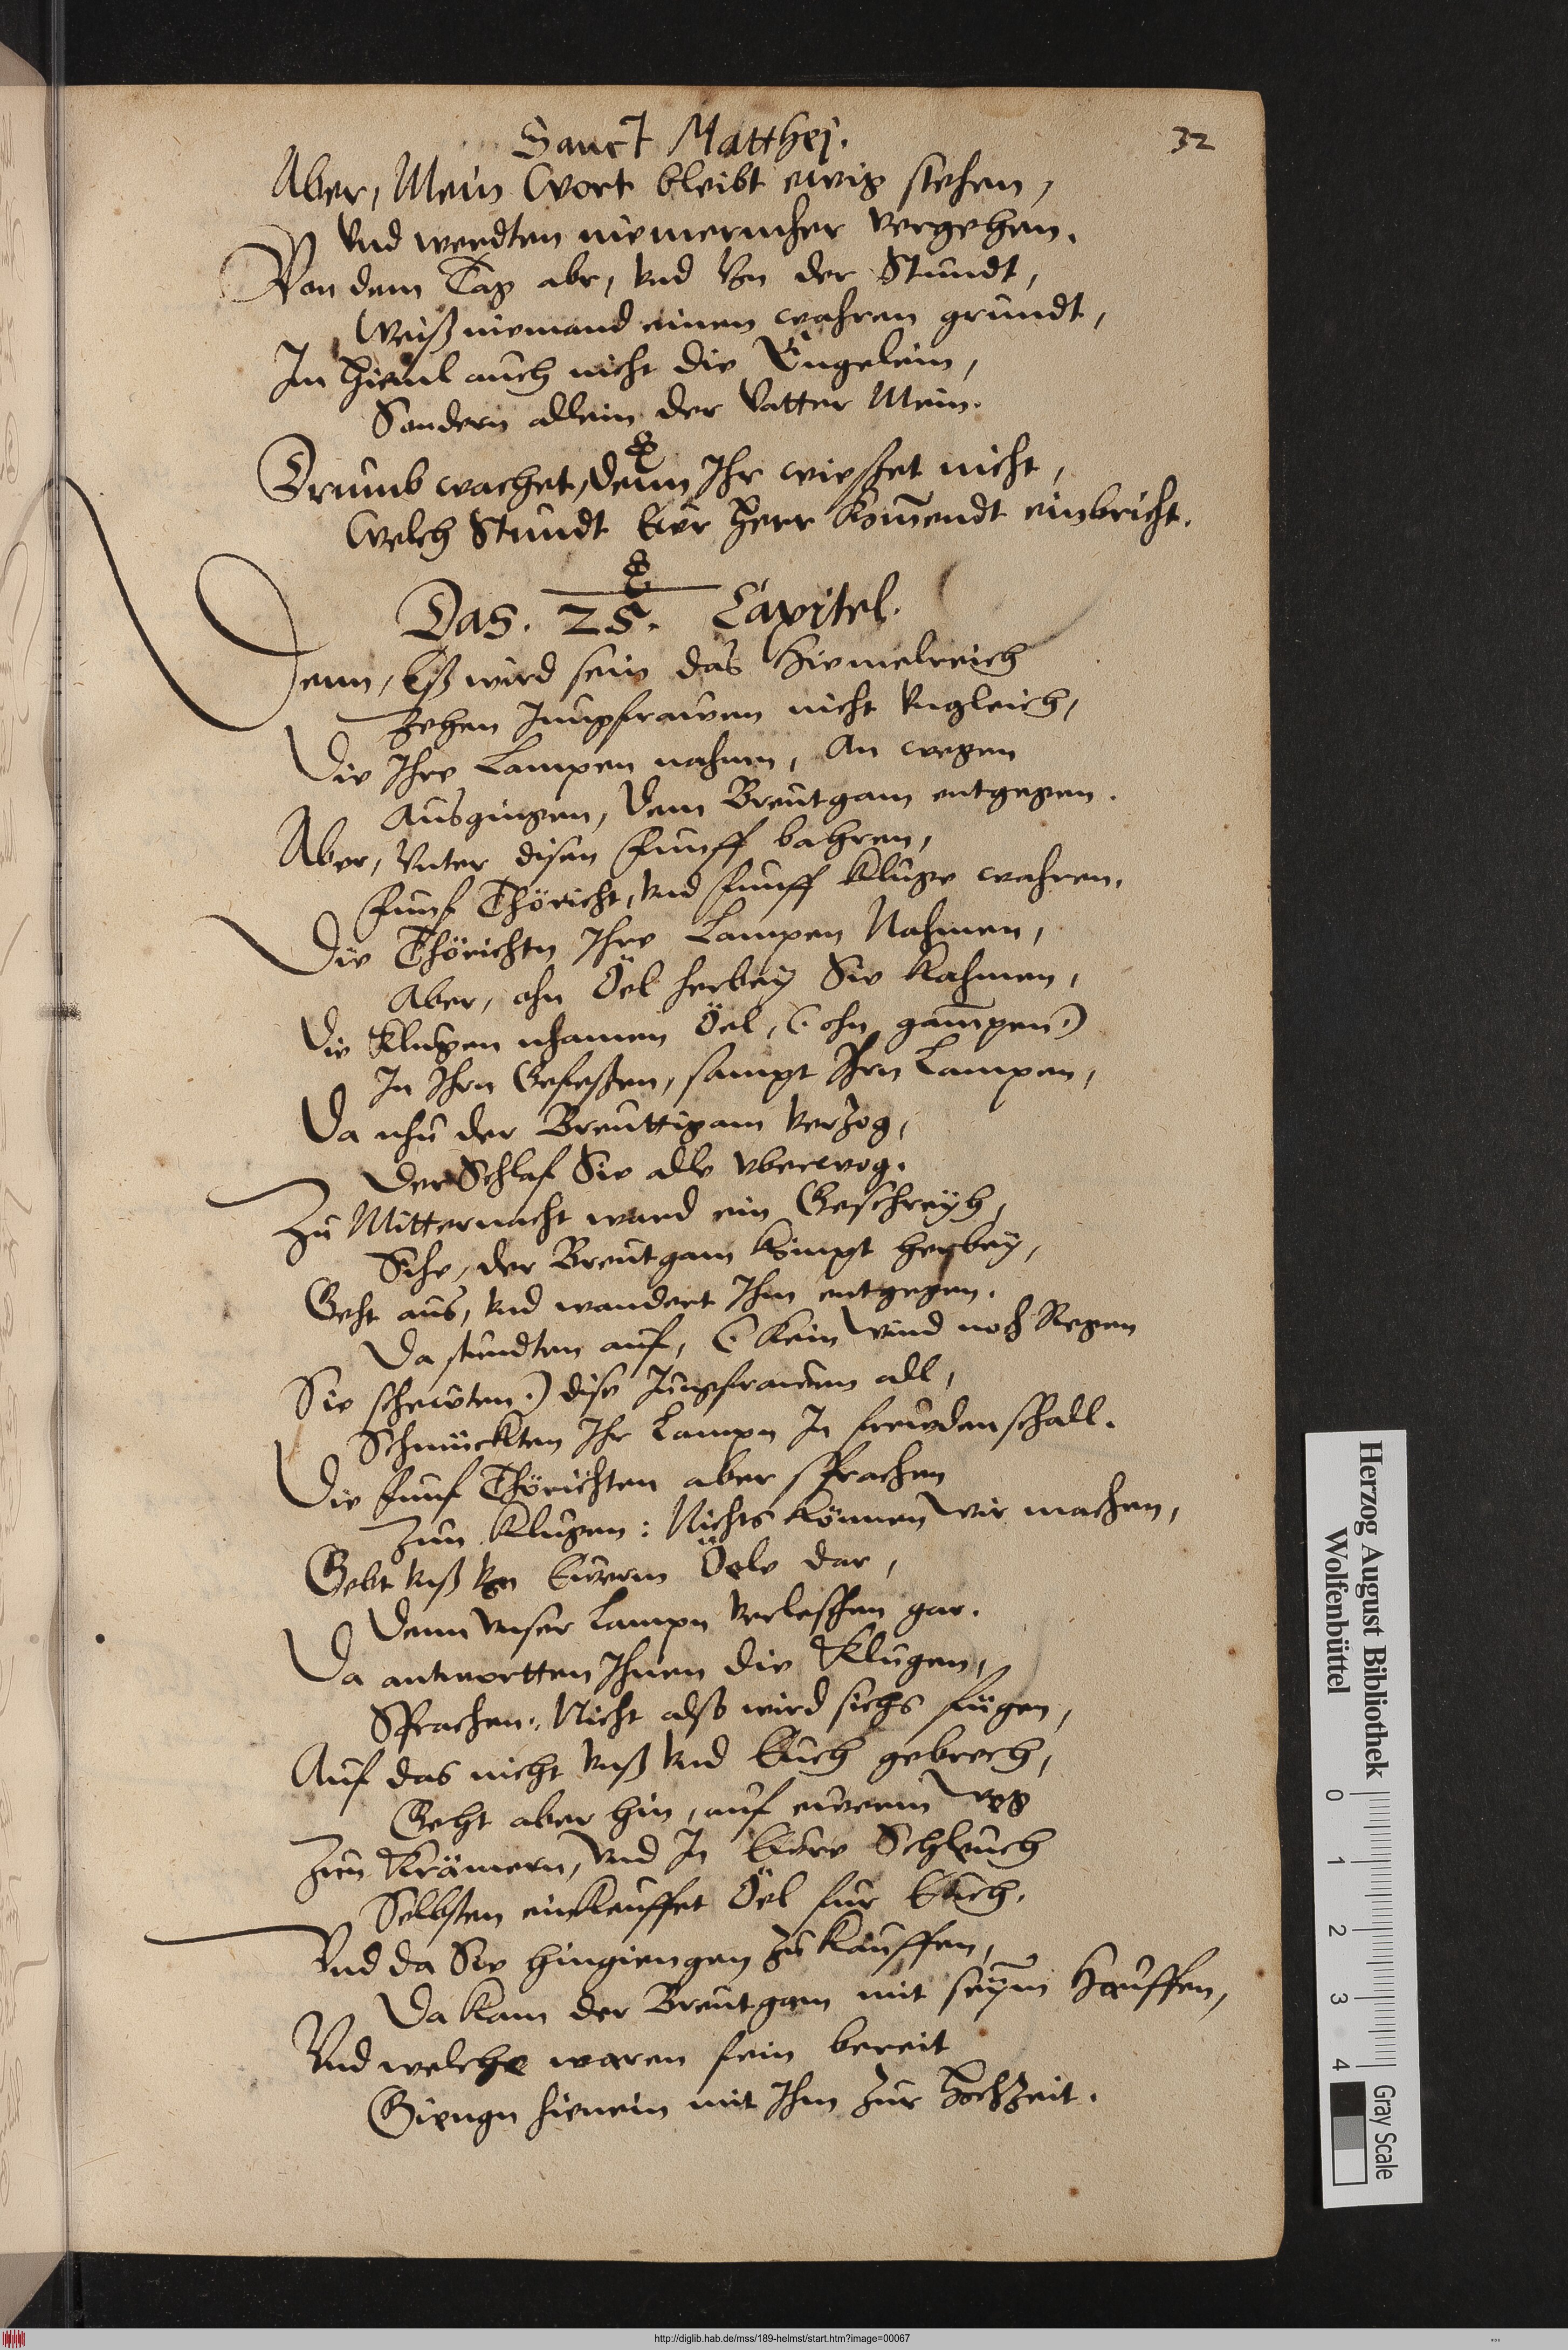 Sanct Matthej.
32
Aber, Mein Wort bleibt ewig stehen,
Vnd werdten niemermher vergehen.
Von dem Tag abr, vnd von der Stundt,
Weiß niemand einen wahren grundt,
Im Himl auch nicht die Engelein,
Sondern allein der Vatter Mein.
Drumb wachet, denn Ihr wießet nicht,
Welch Stundt Eur Herr Kommendt einbricht.
Das. 25. Capitel.
Denn, Eß wird sein das Himelreich
Zehen Jungfrawen nicht vngleich,
Die Ihre Lampen nahmen, An wegen
Ausgingen, dem Breutgam entgegen.
Aber, Vnter disen Funff bahren,
Funf Thöricht, vnd Funff kluge wahren.
Die Thörichtn Ihre Lampen Nahmen,
Aber, ohn Öel herbey Sie kahmen,
Die Klugen nhamen Öel, (ohn gampen)
In Ihrn Gefeßen, sampt Ihrn Lampen,
Da nhu der Breuttigam verzog,
Der Schlaf Sie alle vberwog.
Zu Mitternacht ward ein Geschreyh,
Sihe, der Breutgam kömpt herbey,
Geht aus, vnd wandert Ihm entgegen.
Da stundten auf, (Kein Wind noch Regen
Sie schewten) dise Jungfrawen all,
Schmückten Ihr Lampn In frewdenschall.
Die Funf Thörichten aber sprachen
Zun Klugen: Nichts können wir machen,
Gebt vnß von Ewerm Öele dar,
Denn vnser Lampn verleschen gar.
Da antwortten Ihnen die Klugen,
Sprachen: Nicht also wird sichs fügen,
Auf das nicht vnß vnd Euch gebrech,
Geht aber hin, auf ewerm Weg
Zun Krämern, Vnd In Ewre Schleuch
Selbsten einkauffet Öel fur Euch.
Vnd da Sie hingiengen zu kauffen,
Da kam der Breutgam mit seym Hauffen,
Vnd welche waren fein bereit
Giengn hienein mit Ihm zur Hochzeit.
Herzog August Bibliothek
Wolfenbüttel
0 1 2 3 4
Gray Scale
http://diglib.hab.de/mss/189-helmst/start.htm?image=00067